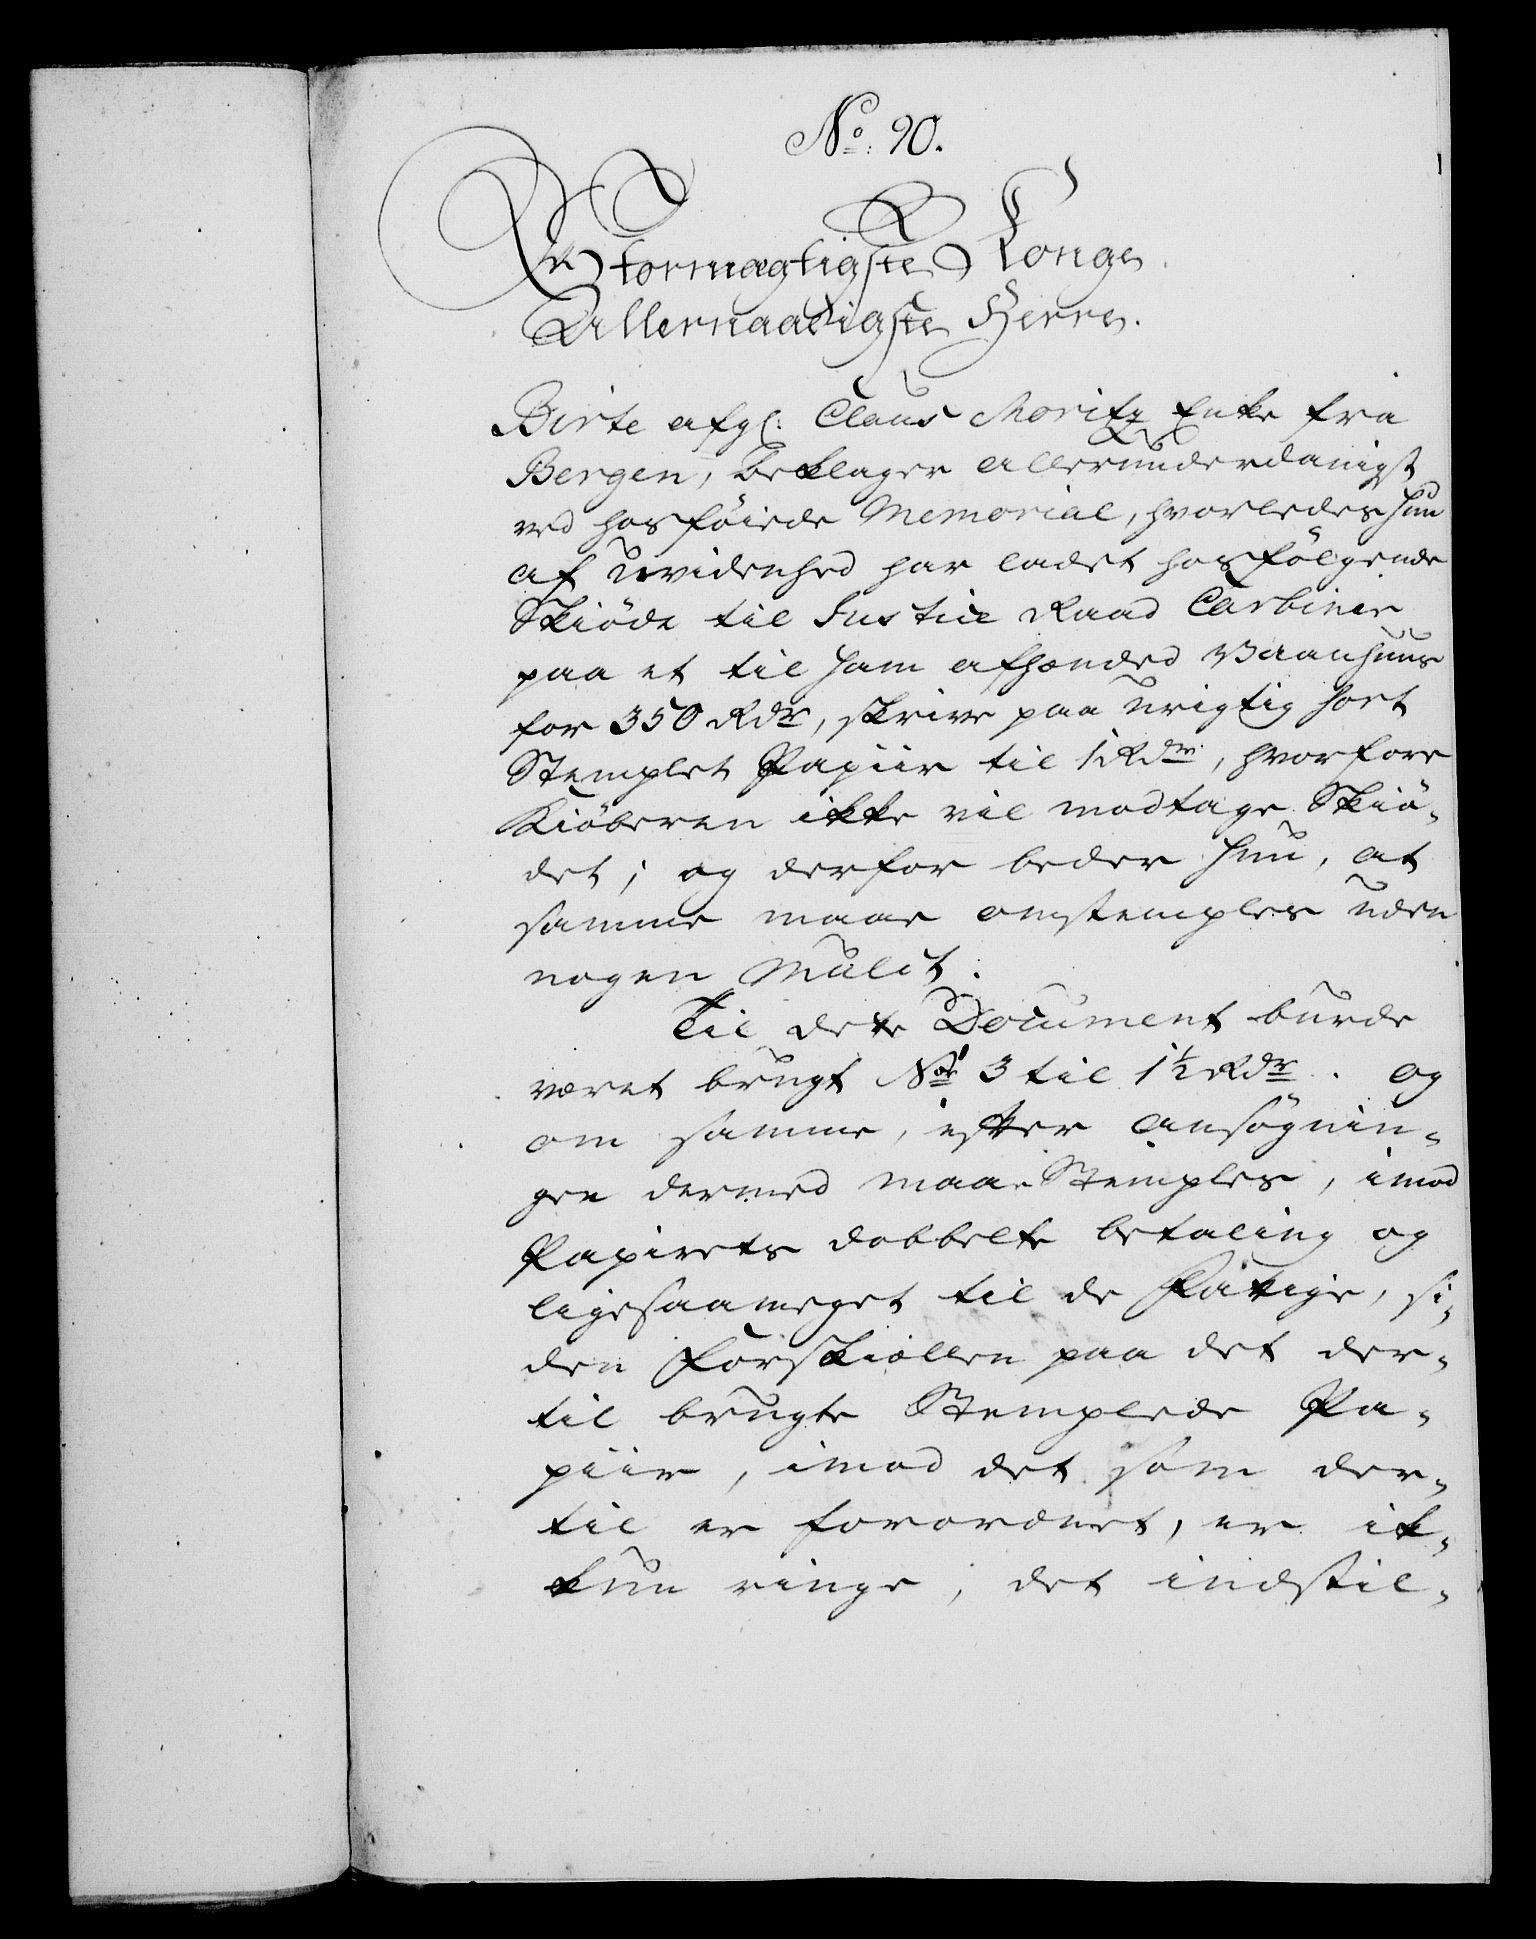 No: 90.
Stormægtigste Konge
Allernaadigste Herre.
Birte afgl: Claus Moritz Enke fra
Bergen, beklager allerunderdanigst
ved hosföiede Memorial, hvorledes hun
af Uvidenhed har ladet hosfölgende
Skiöde til Justice Raad Carbiner
paa et til ham afhændet Vaanhuus
for 350 Rdr, skrive paa urigtig sort
Stemplet Papiir til 1 Rdr, hvorfore
Kiöberen ikke vil modtage Skiö-
det; og derfor beder hun, at
samme maae omstemples uden
nogen Mulct.
Til dette Document burde
været brugt No 3 til 1½ Rdr. og
om samme, efter Ansögnin-
gen dermed maae Stemples, imod
Papirets dobbelte betaling og
ligesaameget til de Fattige, si-
den Forskiællen paa det der-
til brugte Stemplede Pa-
piir, imod det som der-
til er forordnet, er ik-
kun ringe, det indstil-